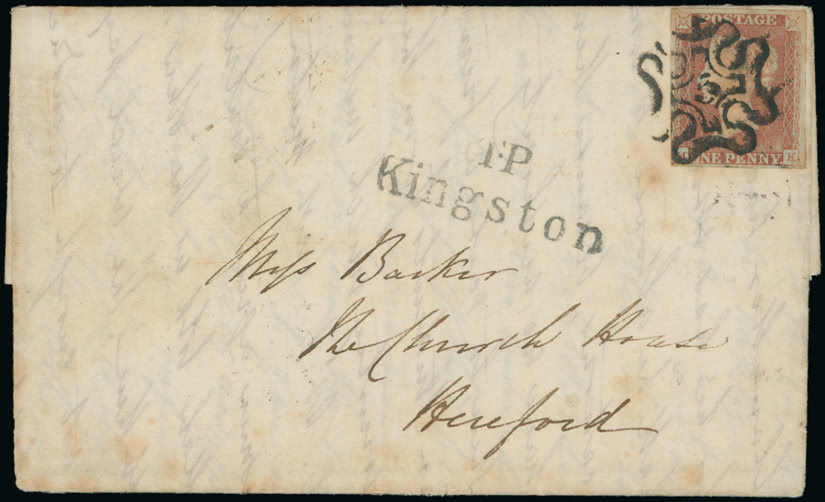 POSTAGE
ONE PENNY K
1·P
Kingston
Miss Barker
The Church House
Hereford